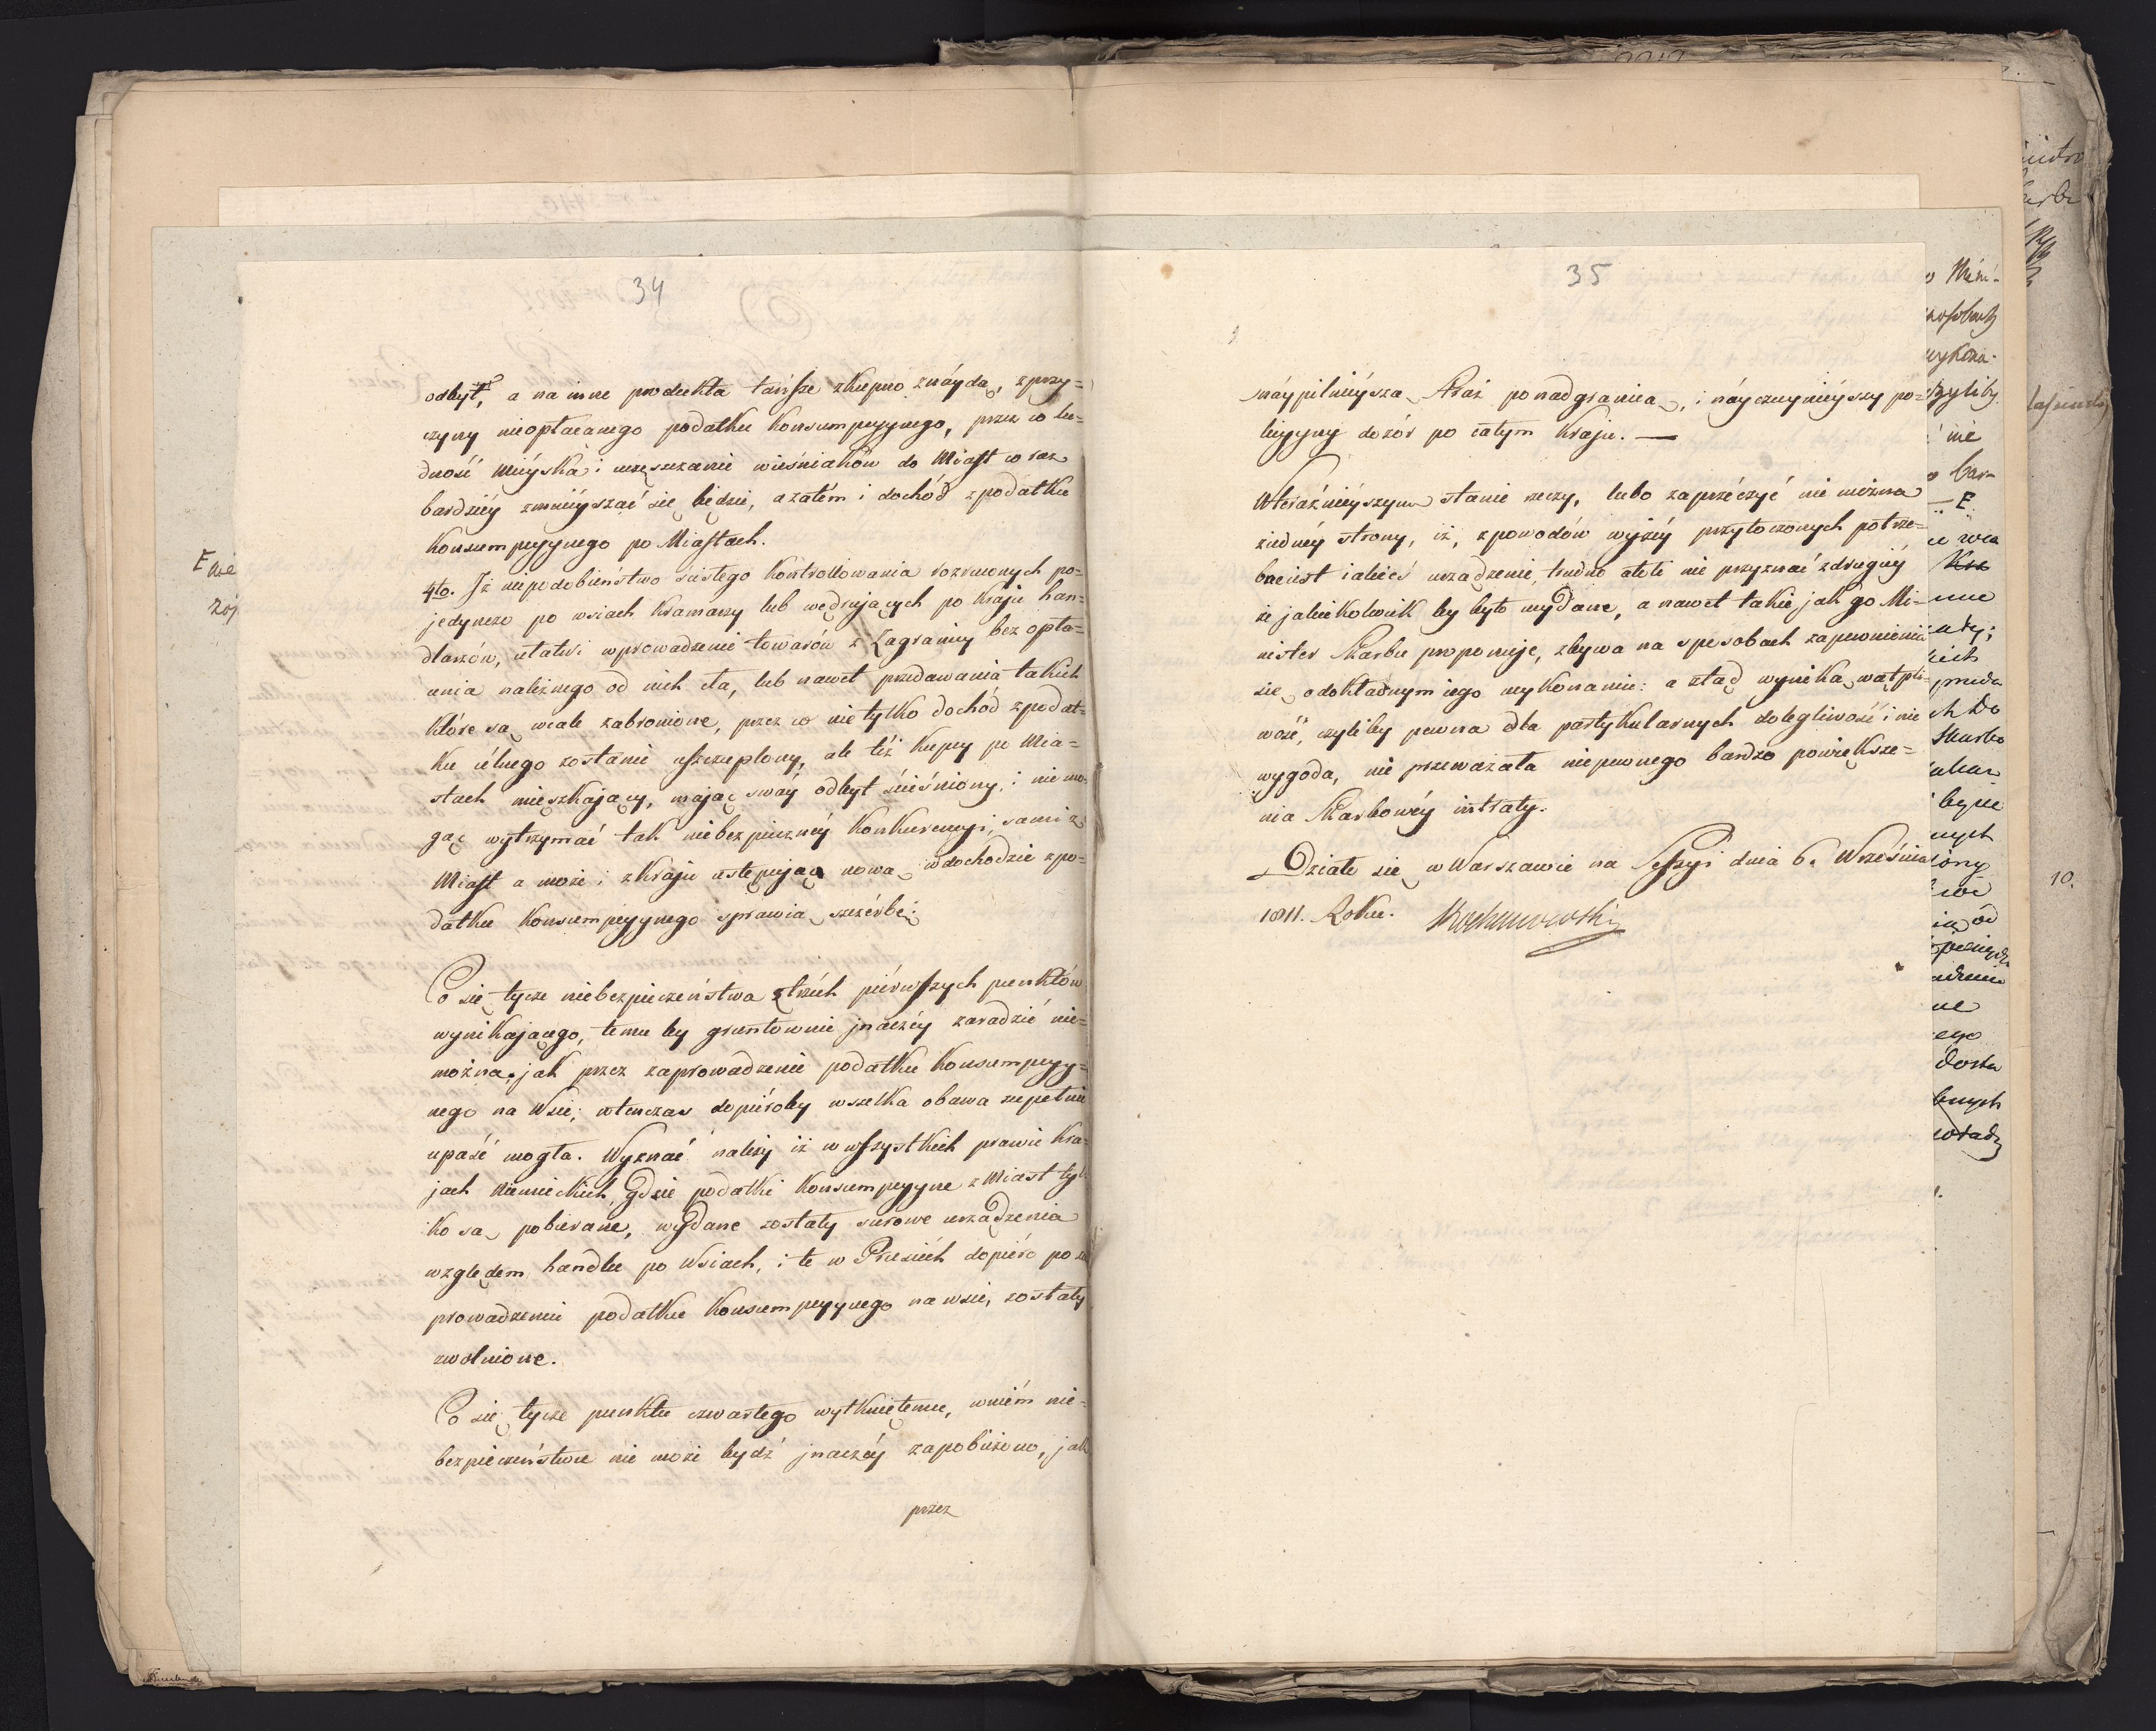 34
odbyt, a na inne produkta tańsze zkupno znáydą, z przy=
czyny nieopłacanego podatku konsumpcyynego, przez co lu=
dność mieyska i uczęszczanie wieśniaków do Miast coraz
bardziéy zmnieyszać się będzie, a zatém i dochód z podatku
konsumpcyynego po Miastach.
4to. Iż niepodobieństwo scisłego kontrollowania rozrzuconych po=
jedynczo po wsiach kramarzy lub wędrujących po kraju han=
dlarzów, ułatwi wprowadzenie towarów z Zagranicy bez opła=
cania należnego od nich cła, lub nawet przedawania takich
które są wcale zabronione, przez co nie tylko dochód z podat=
ku célnego zostanie uszczuplony, ale też kupcy po Mia=
stach mieszkający, mając swóy odbyt ściéśniony, i nie mo=
gąc wytrzymać tak niebezpieczney konkurencyi, sami z
Miast a może i z kraju ustępując nową w dochodzie z po=
datku konsumpcyynego sprawią szczérbę.
Co się tycze niebezpieczeństwa z trzéch piérwszych punktów
wynikającego, temu by gruntownie jnaczéy zaradzić nie=
można, jak przez zaprowadzenie podatku konsumpcyy=
nego na Wsie; wtenczas dopiéroby wszelka obawa zupełnie
upaść mogła. Wyznać należy iż w wszystkich prawie kra=
jach Niemieckich, gdzie podatki konsumpcyyne z Miast tyl
ko są pobierane, wydane zostały surowe urządzenia
względem handlu po Wsiach, i te w Prusiéch dopiéro po za
prowadzeniu podatku konsumpcyynego na wsie, zostały
zwolnione.
Co się tycze punktu czwartego wytkniętemu, w niém nie=
bezpieczeństwu nie może bydź jnaczéy zapobieżono, jak
przez
35
náypilnieyszą Straż ponadgraniczą, i náyczuynieyszy po=
licyyny dozór po całym kraju. —
W teraźnieyszym stanie rzeczy, lubo zaprzéczyć nie można
z iednéy strony, iż, z powodów wyżéy przytoczonych potrze=
bne iest iakieś urządzenie, trudno atoli nie przyznać z drugiéy
że jakiekolwiek by było wydane, a nawet takie jak go Mi=
nister Skarbu proponuje, zbywa na sposobach zapewnienia
się o dokładnym iego wykonaniu: a ztąd wynika wątpli=
wość, czyliby pewna dla partykularnych dolegliwość i nie
wygoda, nie przeważała niepewnego bardzo powiększe=
nia Skarbowéy intraty.
Działo się w Warszawie na Sessyi dnia 6. Września
1811. Roku. Kochanowski
10.